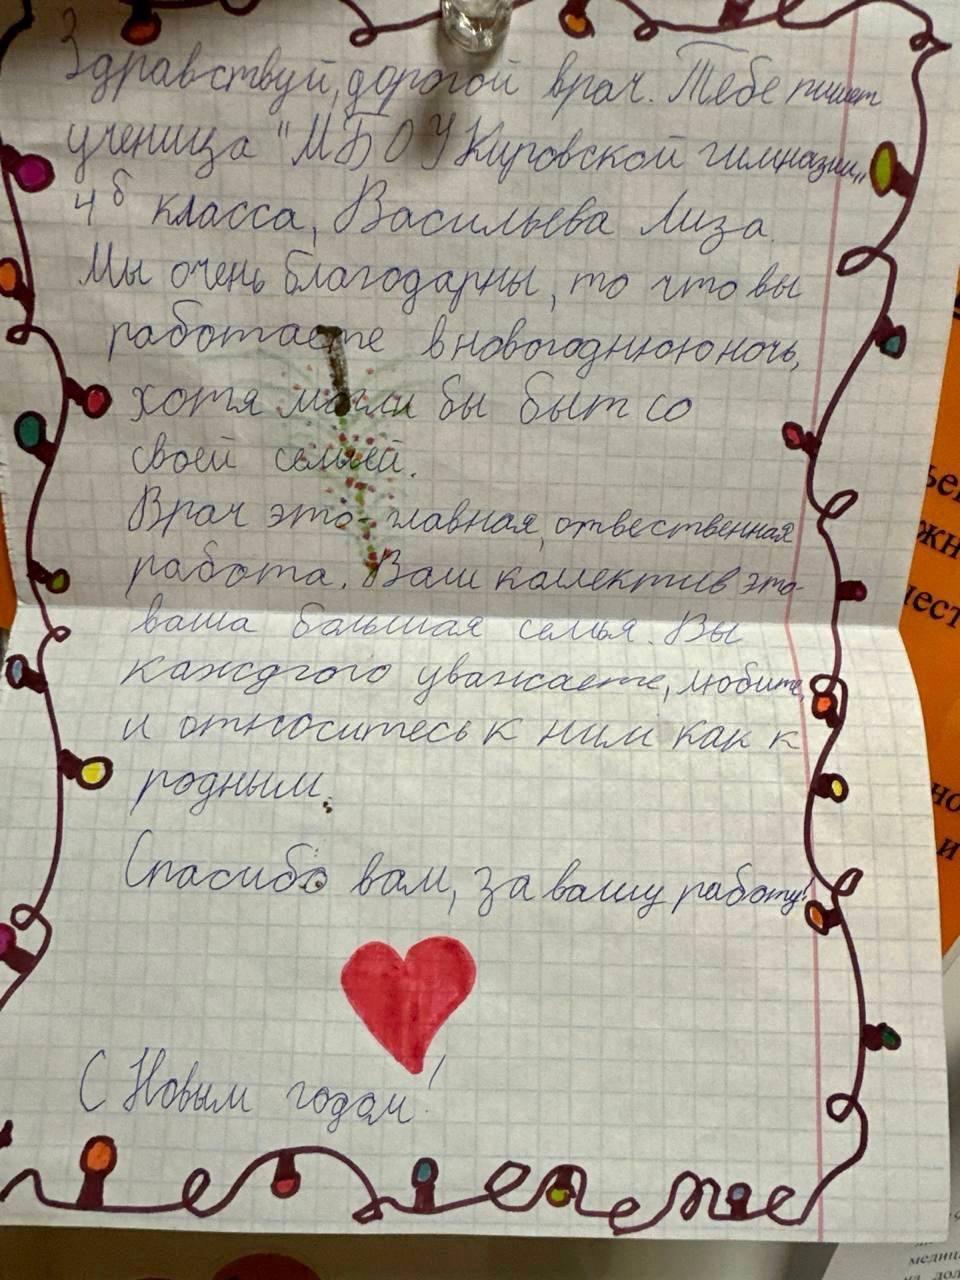 Здравствуй, дорогой врач. Тебе пишет
ученица "МБОУ Кировской гимназии„
4б класса, Васильева Лиза.
Мы очень благодарны, то что вы
работаете в новогоднюю ночь,
хотя могли бы быт со
своей семьей.
Врач это- главная, отвественная
работа. Ваш коллектив это-
ваша большая семья. Вы
каждгого уважаете, любите,
и относитесь к ним как к
родным.
Спасибо вам, за вашу работу!
С Новым годом!